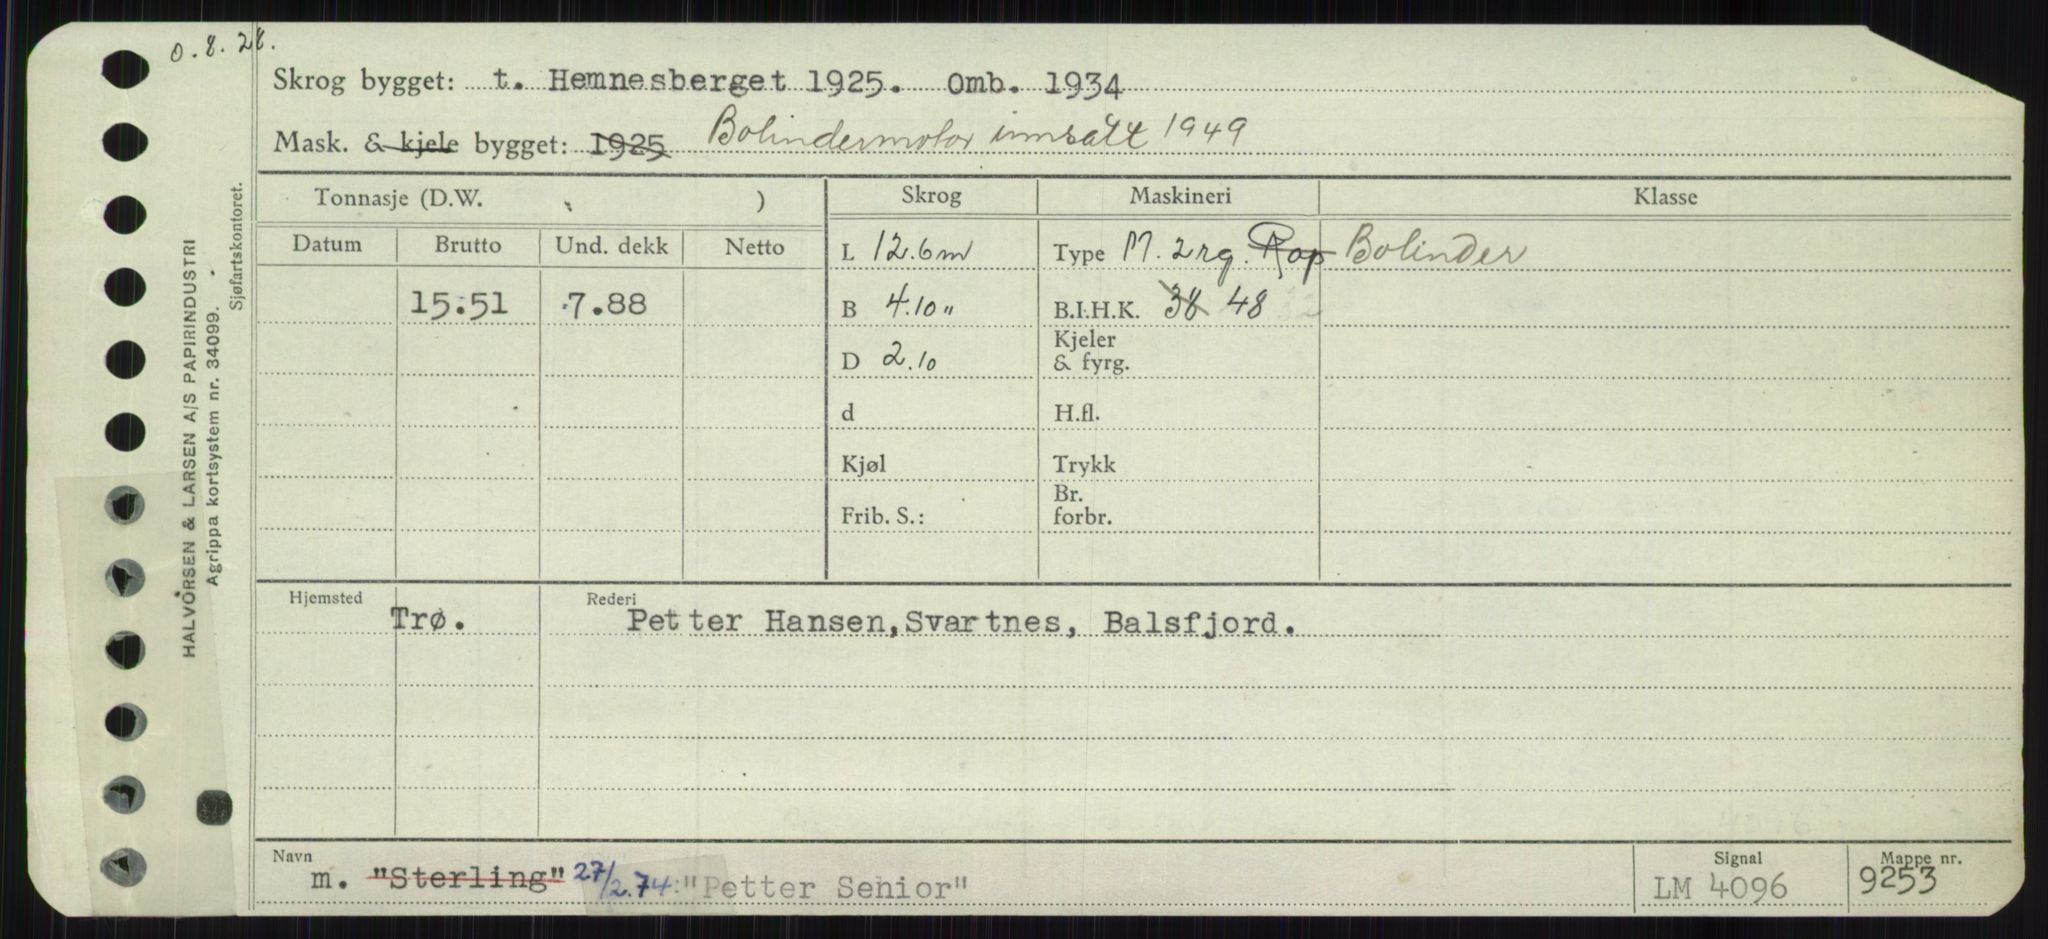 O.8.28.
Skrog bygget: t. Hemnesberget 1925. Omb. 1934
Mask. & kjele bygget: 1925 Bolindermotor innsatt 1949
Tonnasje (D.W. ) Skrog Maskineri Klasse
Datum Brutto Und. dekk Netto
L 12.6m Type M. 2rg. Rap Bolinder
15.51 7.88 B 4.10 " B.I.H.K. 38 48
D 2.10 Kjeler & fyrg.
d H.fl.
Kjøl Trykk
Frib. S.: Br. forbr.
Hjemsted Rederi
Trø. Petter Hansen, Svartnes, Balsfjord.
Navn Signal Mappe nr.
m. "Sterling" 27/2.74: "Petter Senior" LM 4096 9253
HALVORSEN & LARSEN A/S PAPIRINDUSTRI
Agrippa kortsystem nr. 34099.
Sjøfartskontoret.